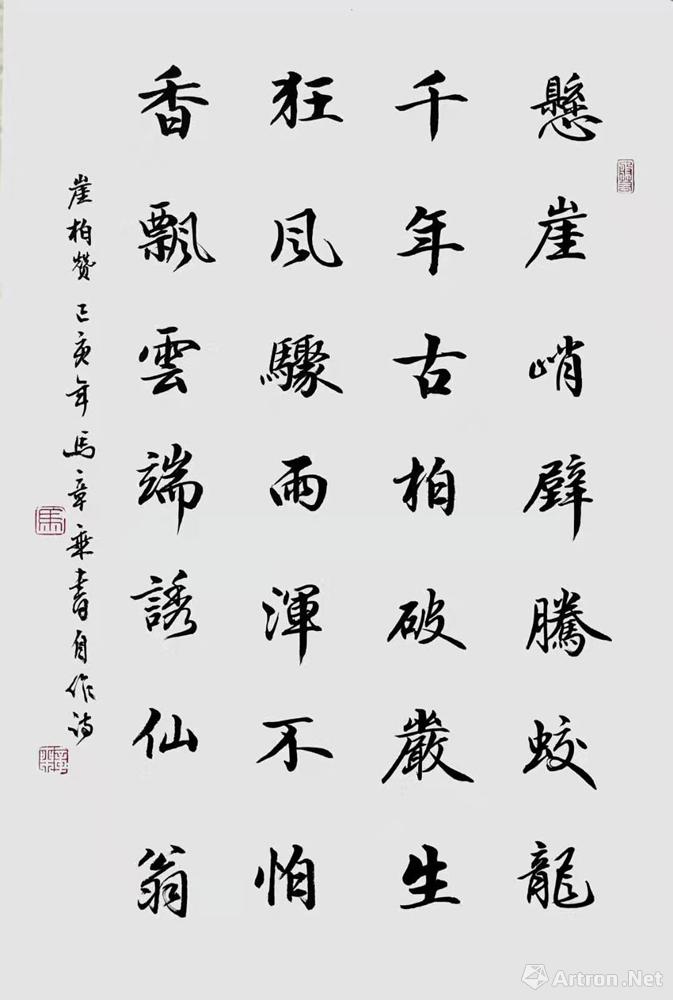 懸崖峭壁騰蛟龍
千年古柏破巖生
狂風驟雨渾不怕
香飄雲端誘仙翁
崖柏贊己亥年馬章乘書自作詩
馬
Artron.Net